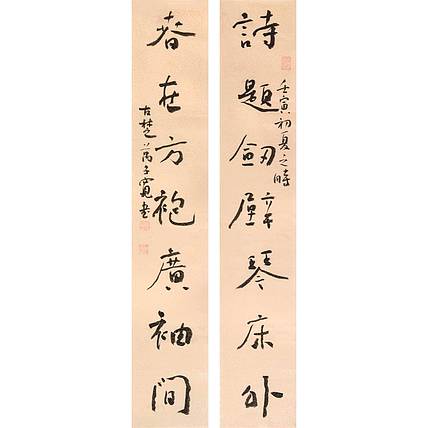 詩題劒壁琴床外
壬寅初夏之時
春在方袍廣袖間
古楚芮子寬書